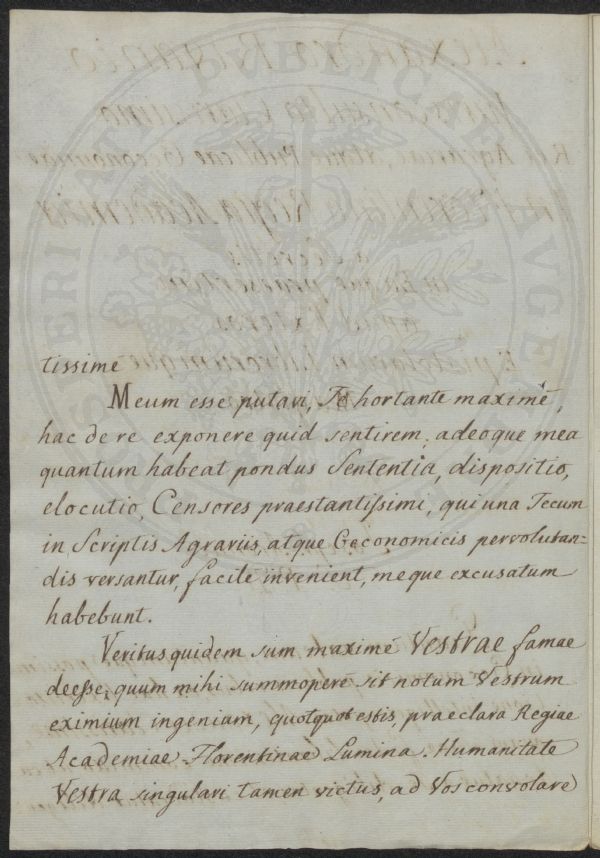 tissime
Meum esse putavi, Te hortante maximè,
hac de re exponere quid sentirem, adeoque mea
quantum habeat pondus Sententia, dispositio,
elocutio, Censores praestantissimi, qui una Tecum
in Scriptis Agrariis, atque Oeconomicis pervolutan=
dis versantur, facile invenient, meque excusatum
habebunt.
Veritus quidem sum maximè Vestrae famae
deesse, quum mihi summopere sit notum Vestrum
eximium ingenium, quotquot estis, praeclara Regiae
Academiae Florentinae Lumina. Humanitate
Vestra singulari tamen victus, ad Vos convolare